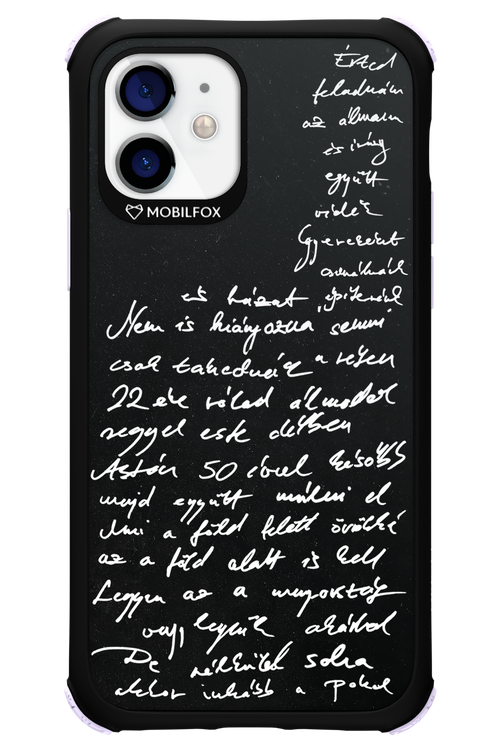 MOBILFOX
Érted
feladnám
az álmam
és így
együtt
vidék
Gyerekeket
csinálnánk
és házat építenék
Nem is hiányozna semmi
csak takednék a részem
22 éve rólad álmodok
reggel este délben
Aztán 50 évvel később
majd együtt múlni el
Ami a föld felett örökké
az a föld alatt is kell
Legyen az a mennyország
vagy legyünk akárhol
De nélküled soha
akkor inkább a Pokol